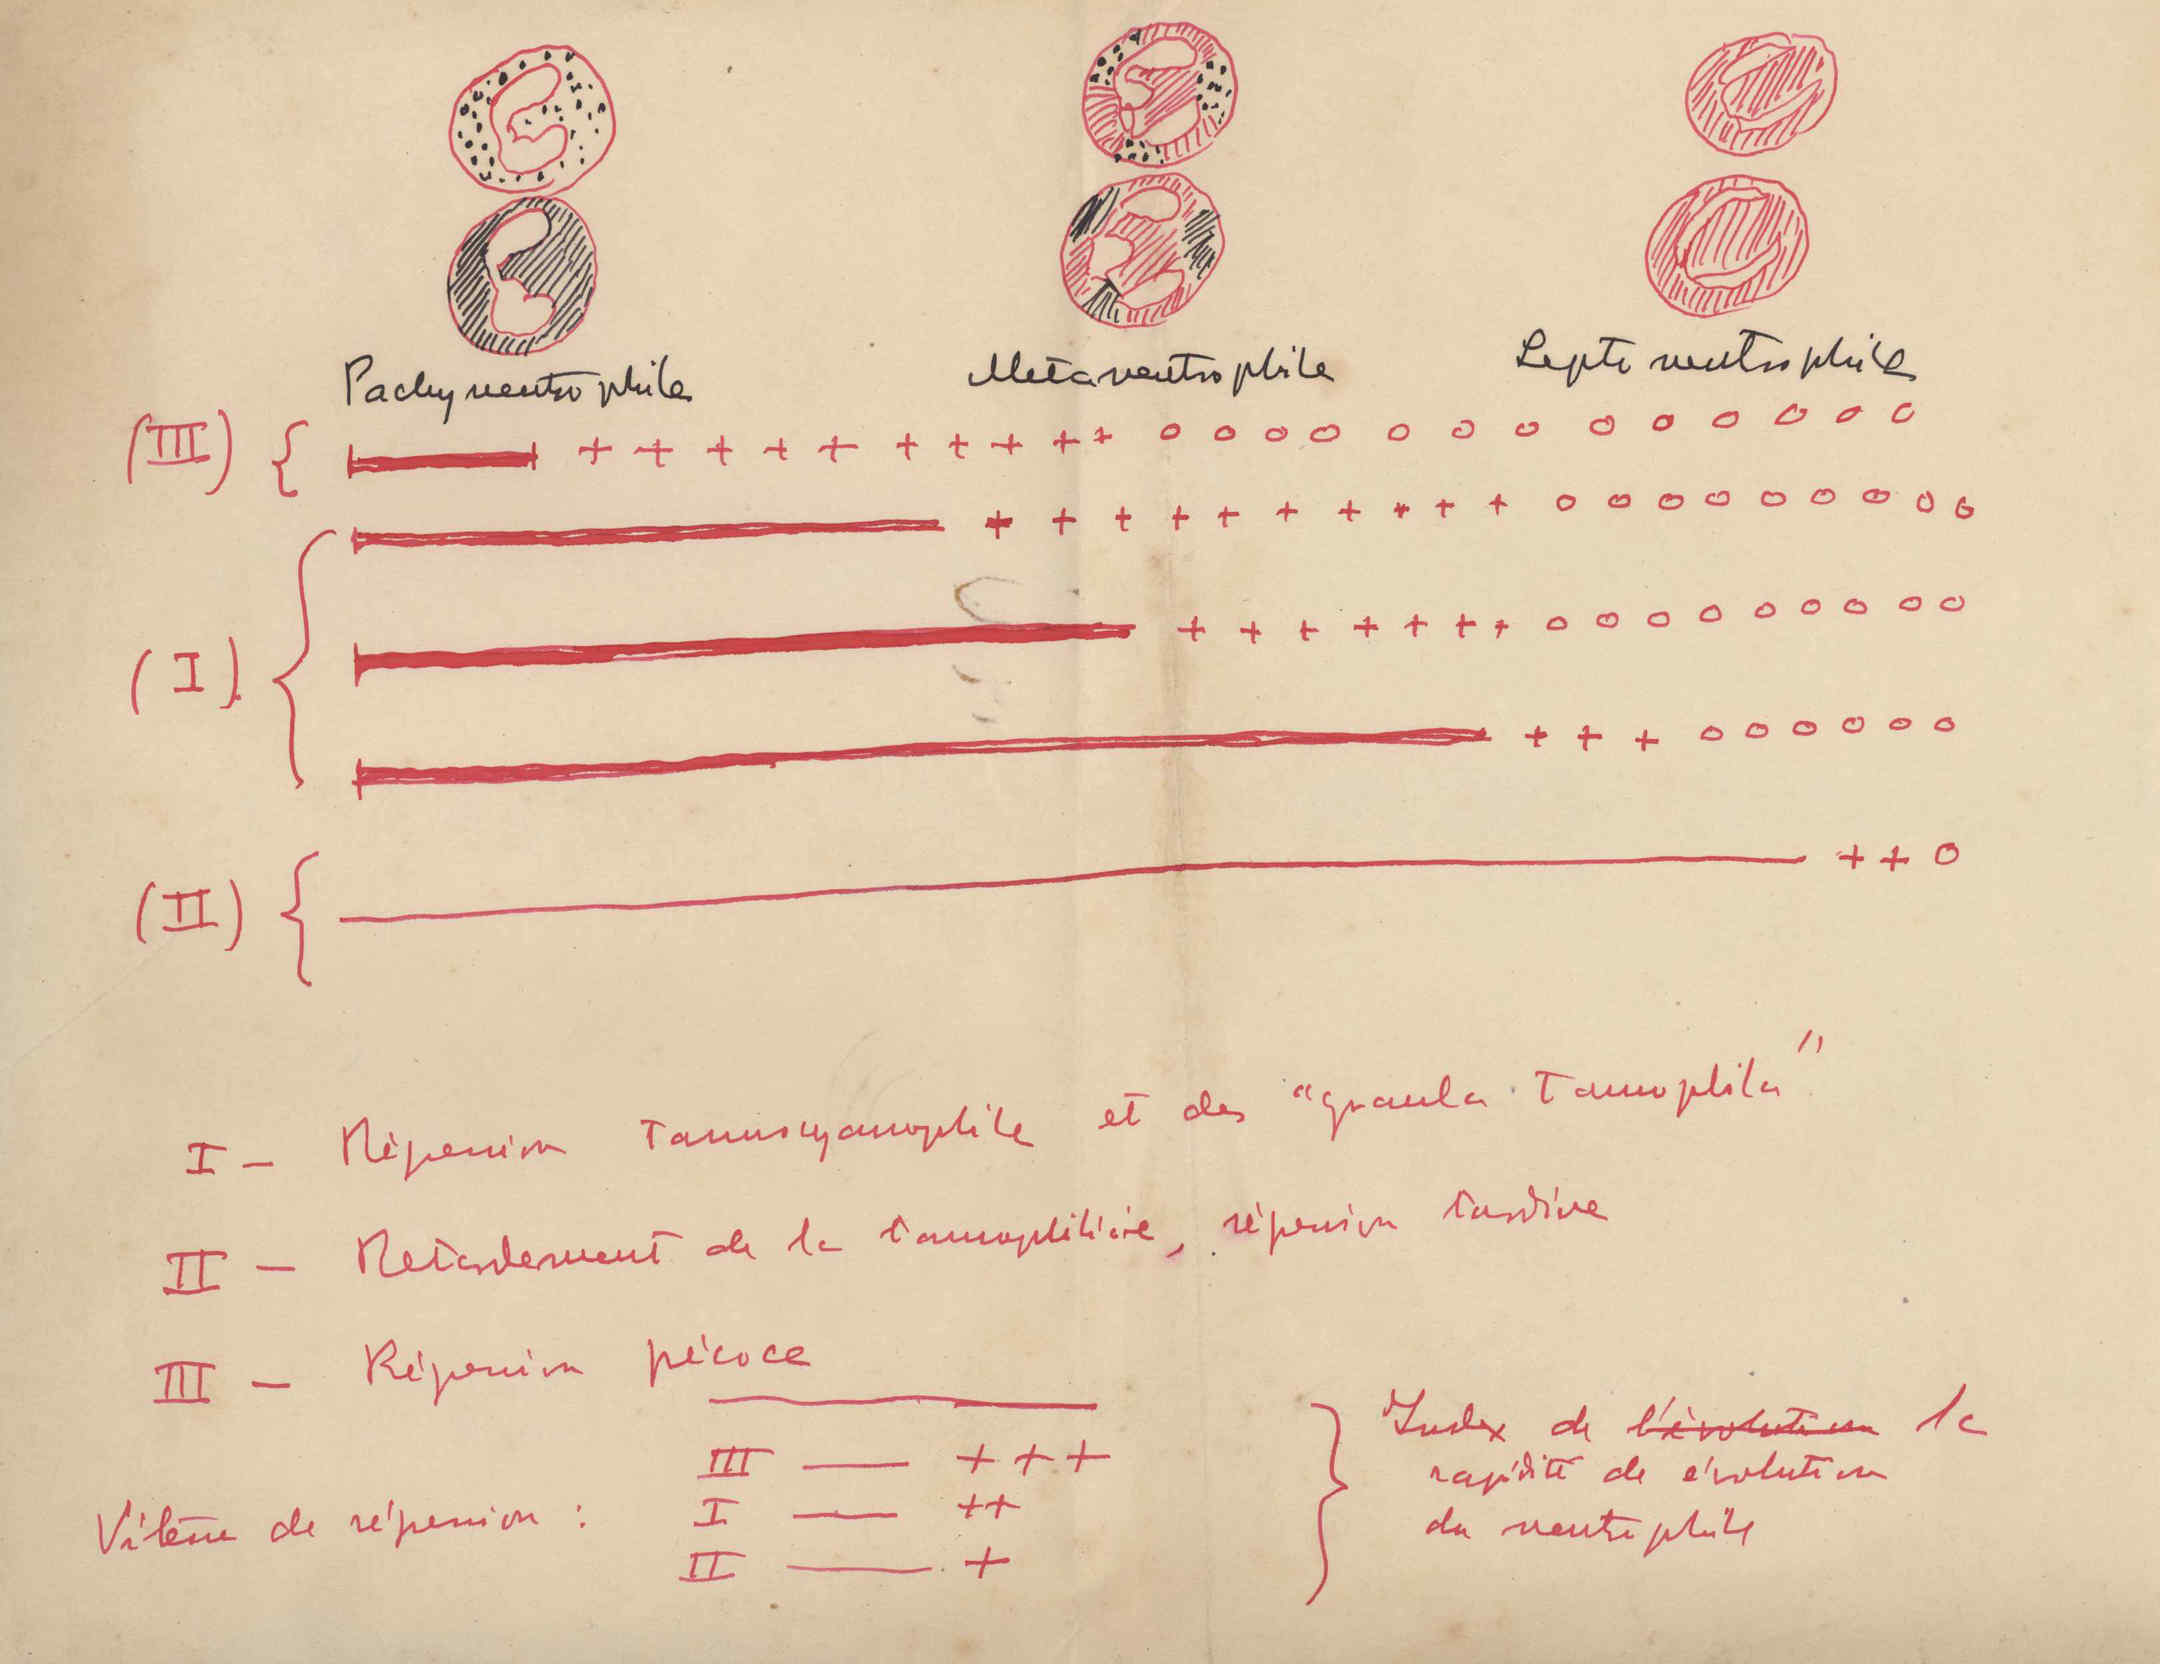 Pachyneutrophile Metaneutrophile Leptoneutrophile
(III) { + + + + + + + + + + o o o o o o o o o o o o o
+ + + + + + + + + + o o o o o o o o o
(I) { + + + + + + + o o o o o o o o o
+ + + o o o o o o
(II) { + + o
I — Répression et des "granula tannophiles"
II — Retardement de la répression tardive
III — Répression précoce
III — + + +
Vitesse de répression : I — ++
II — +
} Index de l'évolution la
rapidité de évolution
du neutrophile